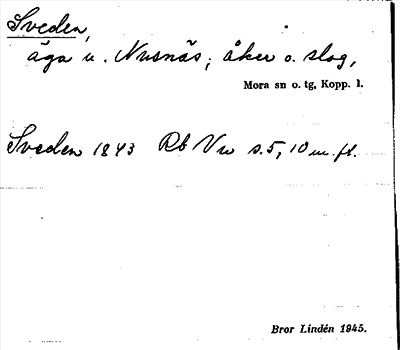 Sveden,
äga u. Nusnäs; åker o. slog,
Mora sn o. tg, Kopp. l.
Sveden 1843 Rb Vw s. 5, 10 m. fl.
Bror Lindén 1945.